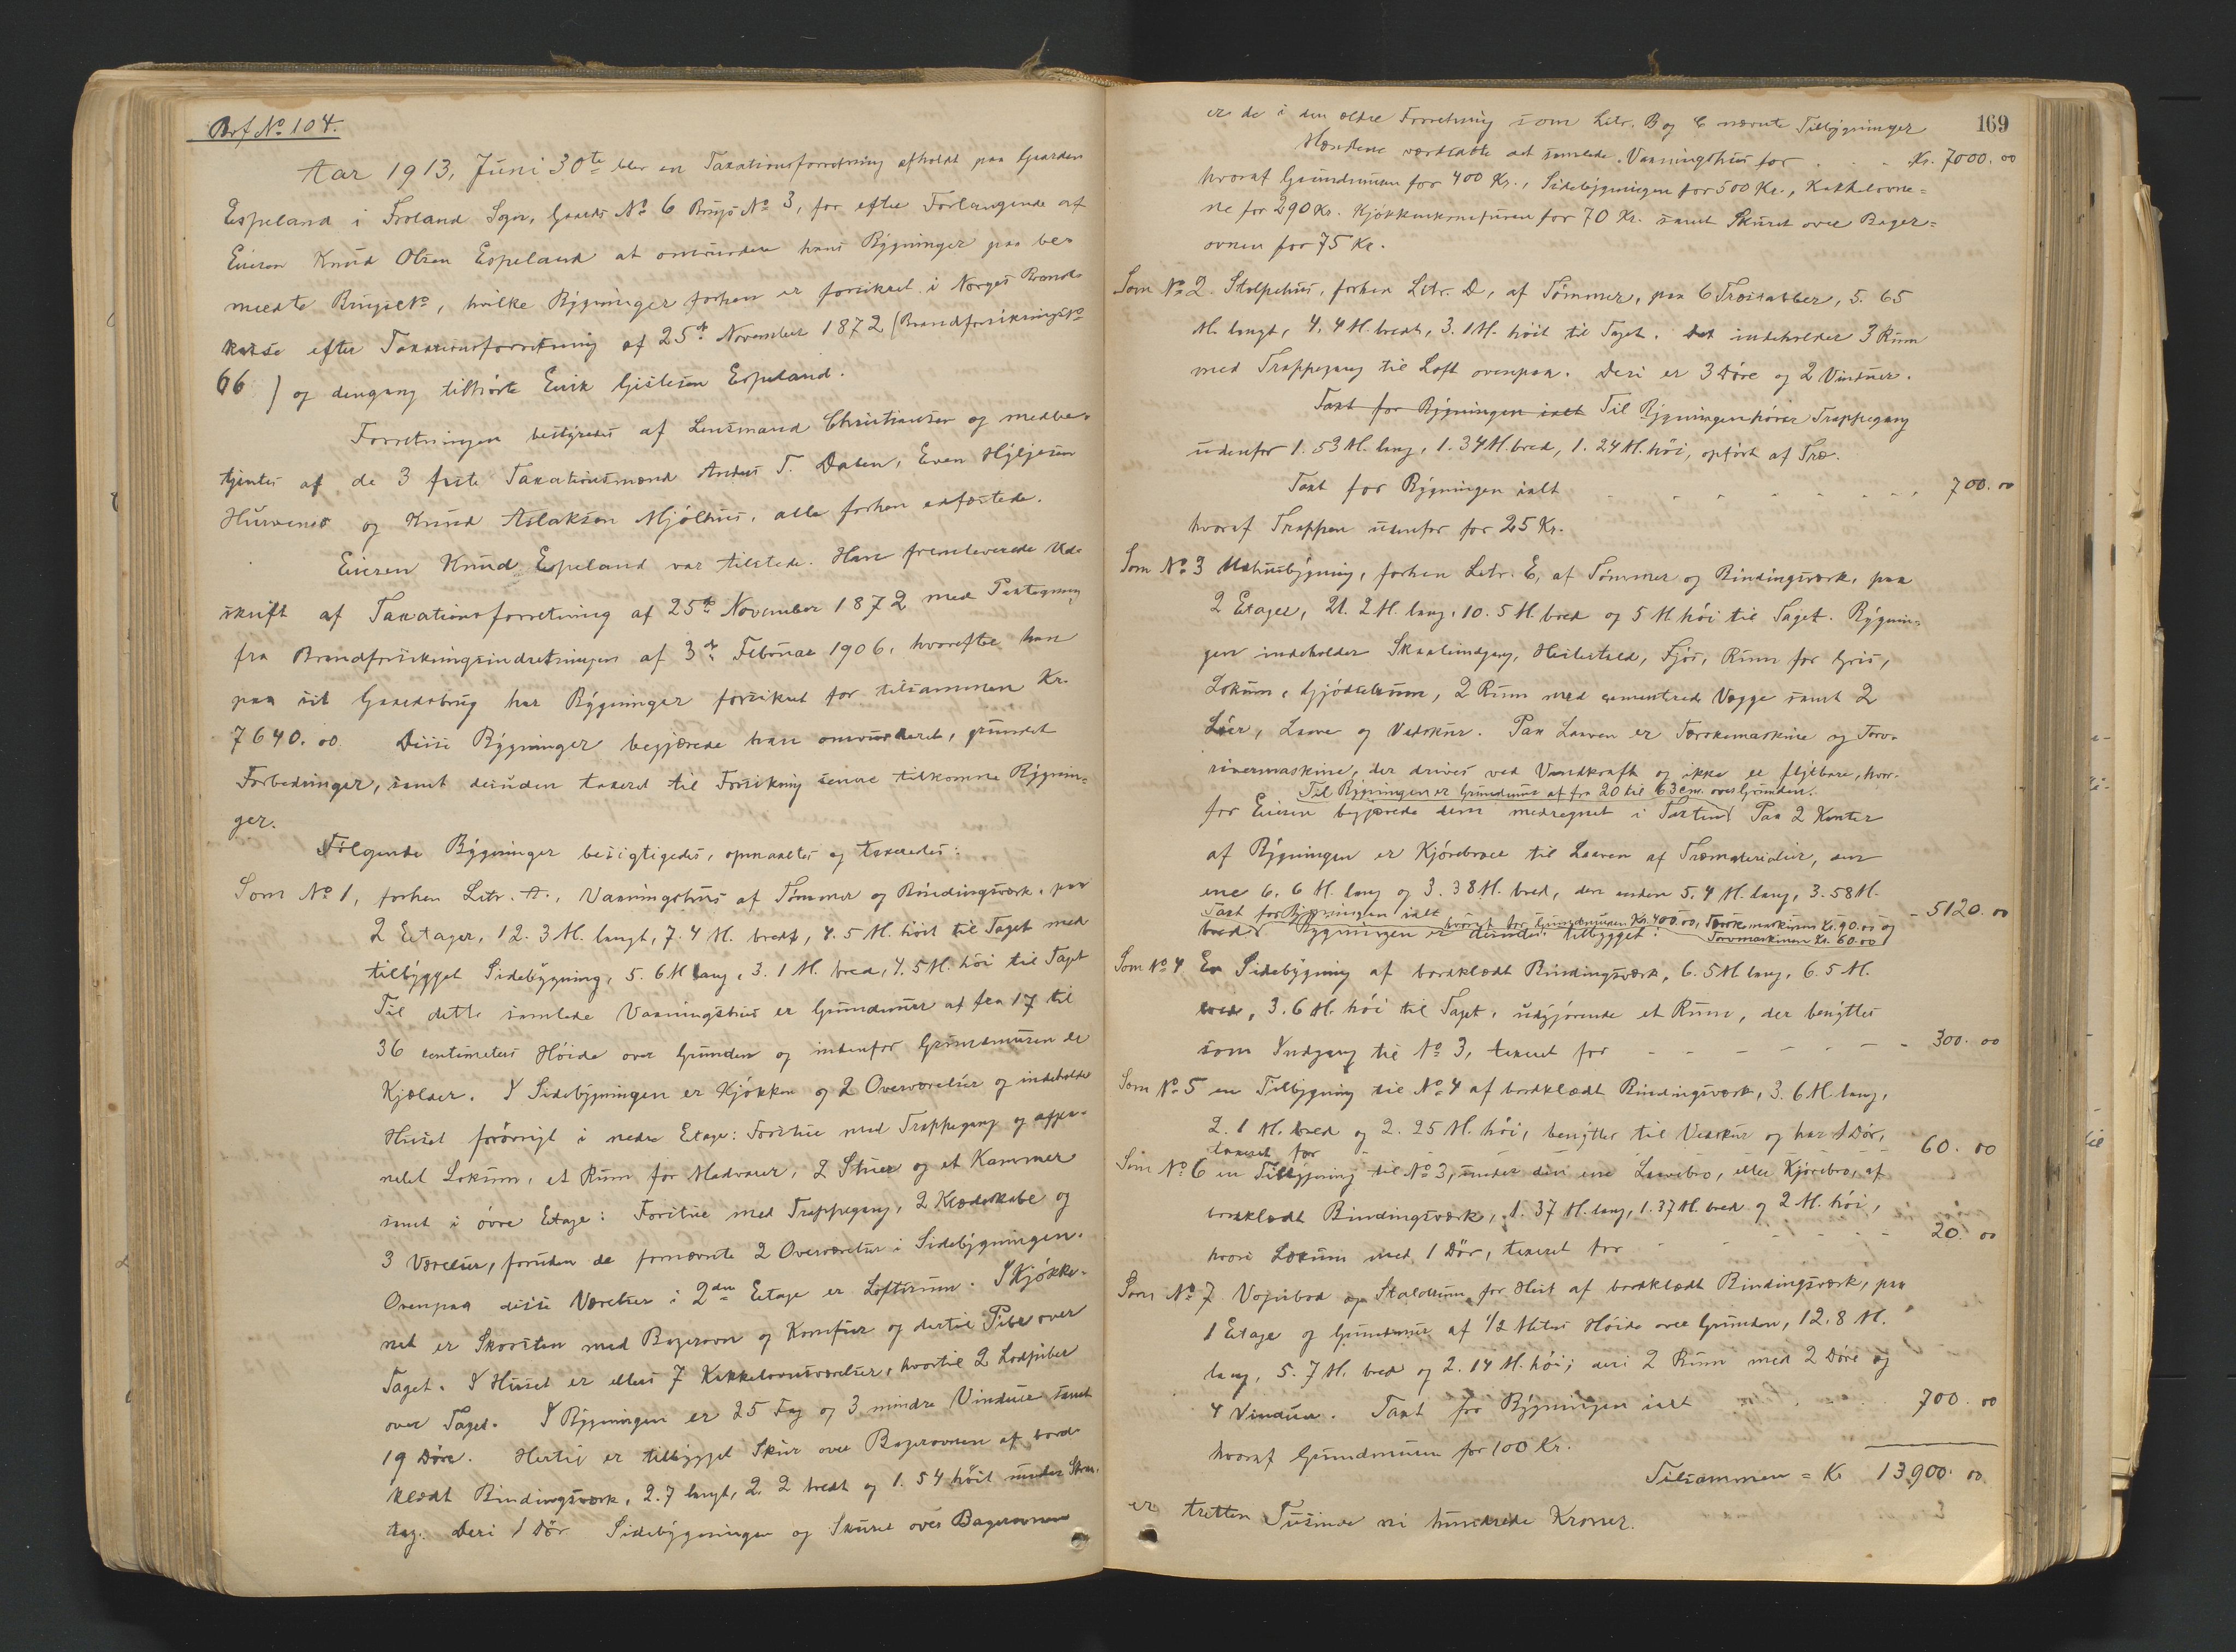 Brf No 104.
Aar 1913, Juni 30te blev en Taxationsforretning afholdt paa Gaarden
Espeland i Froland Sogn, Gaards No 6 Brugs No 3, for efter Forlangende af
Eieren Knud Olsen Espeland at omvurdere hans Bygninger paa be-
meldte BrugsNo, hvilke Bygninger forhen er forsikret i Norges Brand-
kasse efter Taxationsforretning af 25de November 1872 (BrandforsikringsNo
66) og dengang tilhørte Eirik Gislesen Espeland.
Forretningen bestyredes af Lensmand Christiansen og medbe-
tjentes af de 3 faste Taxationsmænd Anders T. Dalen, Even
og Knud Aslaksen Mjølhus, alle forhen edfæstede.
Eieren Knud Espeland var tilstede. Han fremleverede Ud-
skrift af Taxationsforretning af 25de November 1872 med Paategning
fra Brandforsikringsindretningen af 3de Februar 1906, hvorefter han
paa sit Gaardsbrug har Bygninger forsikret for tilsammen Kr.
7640.00. Disse Bygninger begjærede han omvurderet, grundet
Forbedringer, samt desuden taxeret til Forsikring senere tilkomne Bygnin-
ger.
Følgende Bygninger besigtigedes, opmaaltes og taxeredes:
Som No 1, forhen Litr. A., Vaaningshus af Tømmer og Bindingsværk, paa
2 Etager, 12.3 M. langt, 7.4 M. bredt, 4.5 M. høit til Taget med
tilbygget Sidebygning, 5.6 M lang, 3.1 M. bred, 4.5 M. høi til Taget
Til dette samlede Vaaningshus er Grundmur af fra 17 til
36 centimeters Høide over Grunden og indenfor Grundmuren er
Kjælder. I Sidebygningen er Kjøkken og 2 Overværelser og indeholder
Huset forøvrigt i nedre Etage: Forstue med Trappegang og afpa-
nelet Lokum, et Rum for Madvarer, 2 Stuer og et Kammer
samt i øvre Etage: Forstue med Trappegang, 2 Klædeskabe og
3 Værelser, foruden de fornævnte 2 Overværelser i Sidebygningen.
Ovenpaa disse Værelser i 2den Etage er Loftsrum. I Kjøkke-
net er Skorsten med Bagerovn og Komfur og dertil Pibe over
Taget. I Huset er ellers 7 Kakkelovnsværelser, hvortil 2 Lodpiber
over Taget. I Bygningen er 25 Fag og 3 mindre Vinduer samt
19 Døre. Hertil er tilbygget Skur over Bagerovnen af bord-
klædt Bindingsværk, 2.7 langt, 2.2 bredt og 1.54 høit under Skraa-
tag. Deri 1 Dør. Sidebygningen og Skuret over Bagerovnen
169
er de i den ældre Forretning som Litr. B og C nævnte Tilbygninger
Mændene værdsatte det samlede Vaaningshus for . . . Kr. 7000.00
hvoraf Grundmuren for 400 Kr., Sidebygningen for 500 Kr., Kakkelovne-
ne for 290 Kr. Kjøkkenkomfuren for 70 Kr. samt Skuret over Bager-
ovnen for 75 Kr.
Som No 2. Stolpehus, forhen Litr. D, af Tømmer, paa 6 Træstabber, 5.65
M. langt, 4.4 M. bredt, 3.1 M. høit til Taget. Det indeholder 3 Rum
med Trappegang til Loft ovenpaa. Deri er 3 Døre og 2 Vinduer.
Taxt for Bygningen ialt Til Bygningen hører Trappegang
udenfor 1.53 M. lang, 1.34 M. bred, 1.24 M. høi, opført af Træ.
Taxt for Bygningen ialt - - - - - - - 700.00
hvoraf Trappen udenfor for 25 Kr.
Som No 3 Udhusbygning, forhen Litr. E, af Tømmer og Bindingsværk, paa
2 Etager, 21.2 M. lang, 10.5 M. bred og 5 M høi til Taget. Bygnin-
gen indeholder Skaalindgang, Hestestald, Fjøs, Rum for Gris,
Lokum, Gjødselrum, 2 Rum med cementerede Vægge samt 2
Løer, Laave og Vedskur. Paa Laaven er Tærskemaskine og Torv-
rivermaskine, der drives ved Vandkraft og ikke er flytbare, hvor-
Til Bygningen er Grundmur af fra 20 til 63 cm. over Grunden.
for Eieren begjærede dem medregnet i Taxten. Paa 2 Kanter
af Bygningen er Kjørebroer til Laaven af Træmaterialier, den
ene 6.6 M. lang og 3.38 M. bred, den anden 5.4 M. lang, 3.58 M.
Taxt for Bygningen ialt - 5120.00
hvoraf for Grundmuren Kr. 400.00, Tærskemaskinen Kr. 90.00 og
bred. Bygningen er desuden tilbygget:
Torvmaskinen Kr. 60.00
Som No 4 En Sidebygning af bordklædt Bindingsværk, 6.5 M lang, 6.5 M.
bred, 3.6 M. høi til Taget, udgjørende et Rum, der benyttes
som Indgang til No 3, taxeret for - - - - - - - 300.00
Som No 5 en Tilbygning til No 4 af bordklædt Bindingsværk, 3.6 M. lang,
2.1 M. bred og 2.25 M. høi, benyttes til Vedskur og har 1 Dør,
taxeret for - - - - - - 60.00
Som No 6 en Tilbygning til No 3, under den ene Laavebro, eller Kjørebro, af
bordklædt Bindingsværk, 1.37 M. lang, 1.37 M. bred og 2 M. høi,
hvori Lokum med 1 Dør, taxeret for - - - - - - 20.00
Som No 7 Vognbod og Staldrum for Hest af bordklædt Bindingsværk, paa
1 Etage og Grundmur af 1/2 Meters Høide over Grunden, 12.8 M.
lang, 5.7 M. bred og 2.14 M. høi; deri 2 Rum med 2 Døre og
4 Vinduer. Taxt for Bygningen ialt . . . . 700.00
hvoraf Grundmuren for 100 Kr.
Tilsammen = Kr 13900.00
er tretten Tusinde ni hundrede Kroner.